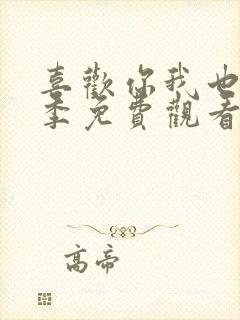 喜歡你我也
季免費觀看
高帝